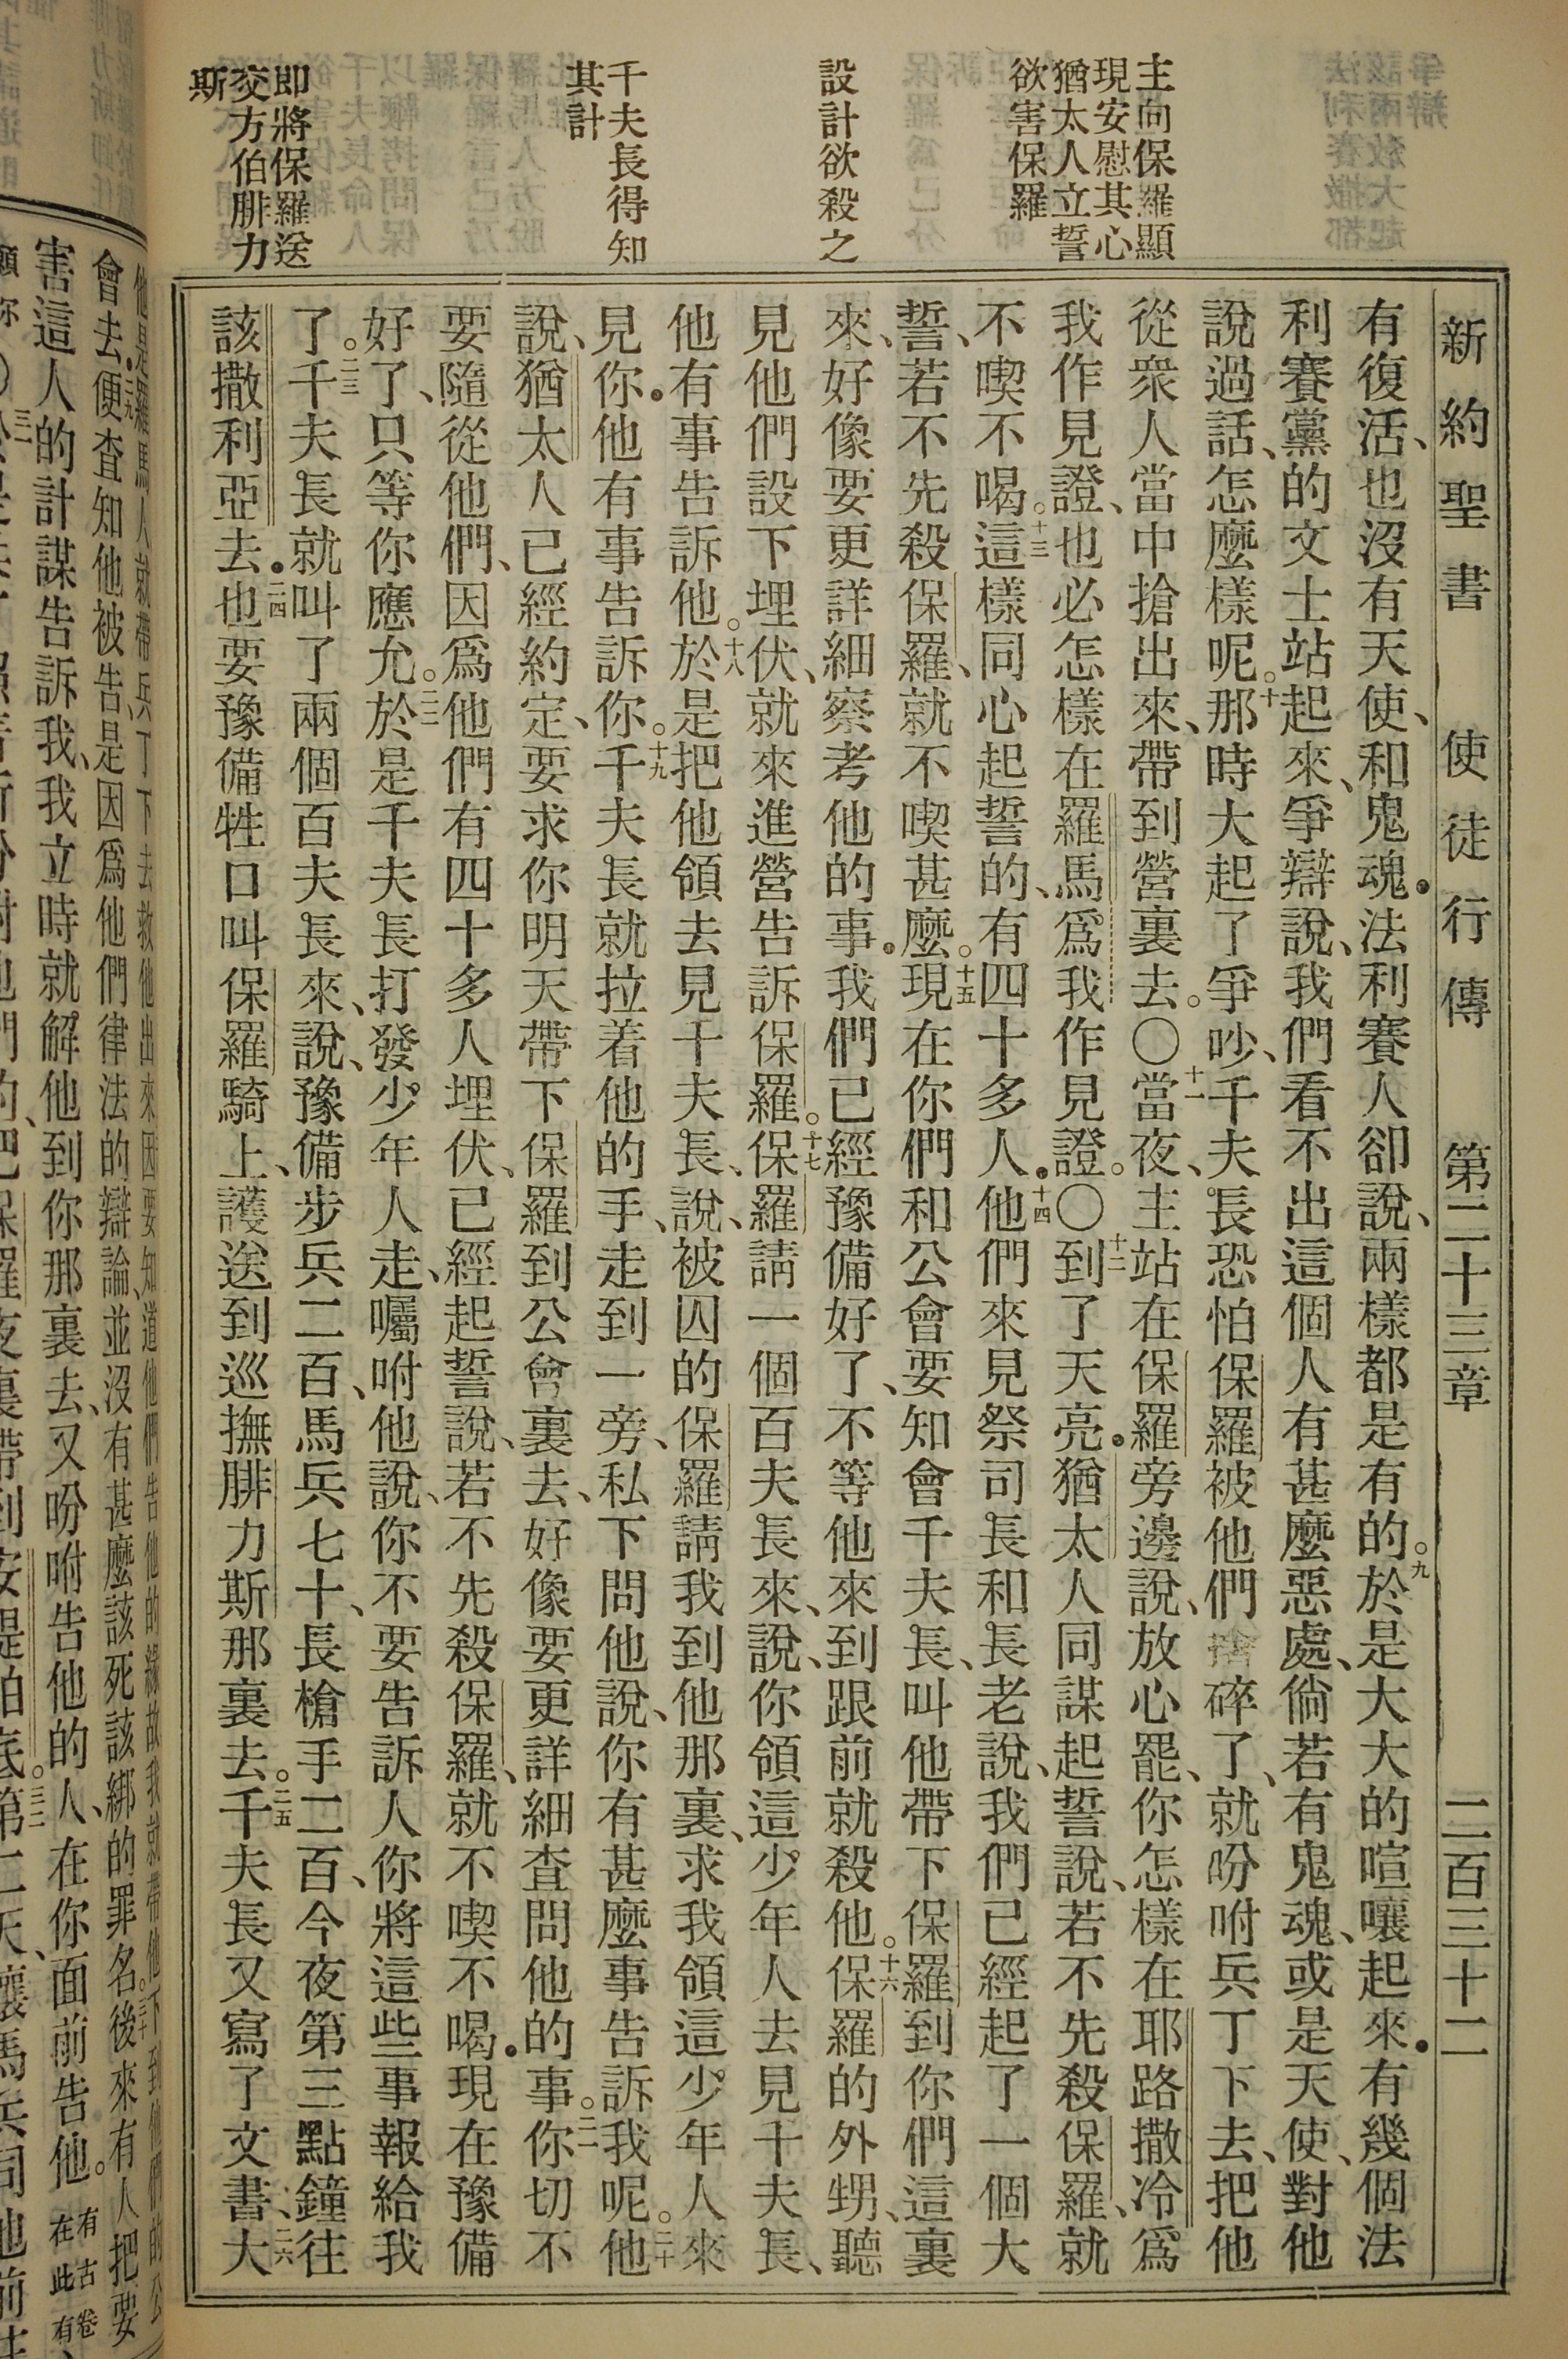 主向保羅顯
現安慰其心
猶太人立誓
欲害保羅
設計欲殺之
千夫長得知
其計
即將保羅送
交方伯腓力
斯
新約聖書 使徒行傳 第二十三章 二百三十二
有復活、也沒有天使、和鬼魂.法利賽人卻說、兩樣都是有的。九於是大大的喧嚷起來.有幾個法
利賽黨的文士站起來、爭辯說、我們看不出這個人有甚麼惡處、倘若有鬼魂、或是天使、對他
說過話、怎麼樣呢。十那時大起了爭吵、千夫長恐怕保羅被他們碎了、就吩咐兵丁下去、把他
從衆人當中搶出來、帶到營裏去。〇十一當夜、主站在保羅旁邊說、放心罷、你怎樣在耶路撒冷、爲
我作見證、也必怎樣在羅馬爲我作見證。〇十二到了天亮.猶太人同謀起誓說、若不先殺保羅、就
不喫不喝。十三這樣同心起誓的、有四十多人.十四他們來見祭司長和長老說、我們已經起了一個大
誓、若不先殺保羅、就不喫甚麼。十五現在你們和公會要知會千夫長、叫他帶下保羅到你們這裏
來、好像要更詳細察考他的事.我們已經豫備好了、不等他來到跟前就殺他。十六保羅的外甥、聽
見他們設下埋伏、就來進營告訴保羅。十七保羅請一個百夫長來、說、你領這少年人去見千夫長、
他有事告訴他。十八於是把他領去見千夫長、說、被囚的保羅請我到他那裏、求我領這少年人來
見你.他有事告訴你。十九千夫長就拉着他的手、走到一旁、私下問他說、你有甚麼事告訴我呢。二十他
說、猶太人已經約定、要求你明天帶下保羅到公會裏去、好像要更詳細查問他的事。二一你切不
要隨從他們、因爲他們有四十多人埋伏、已經起誓說、若不先殺保羅、就不喫不喝.現在豫備
好了、只等你應允。二二於是千夫長打發少年人走、囑咐他說、你不要告訴人你將這些事報給我
了。二三千夫長就叫了兩個百夫長來、說、豫備步兵二百、馬兵七十、長槍手二百、今夜第三點鐘往
該撒利亞去.二四也要豫備牲口叫保羅騎上、護送到巡撫腓力斯那裏去。二五千夫長又寫了文書、二六大
他是羅馬人就帶兵丁下去救他出來因要知道他們告他的緣故我就帶他下到他們的公
會去.二九便查知他被告、是因爲他們律法的辯論、並沒有甚麼該死該綁的罪名。三十後來有人把要
害這人的計謀告訴我、我立時就解他到你那裏去、又吩咐告他的人、在你面前告他。有古卷在此有